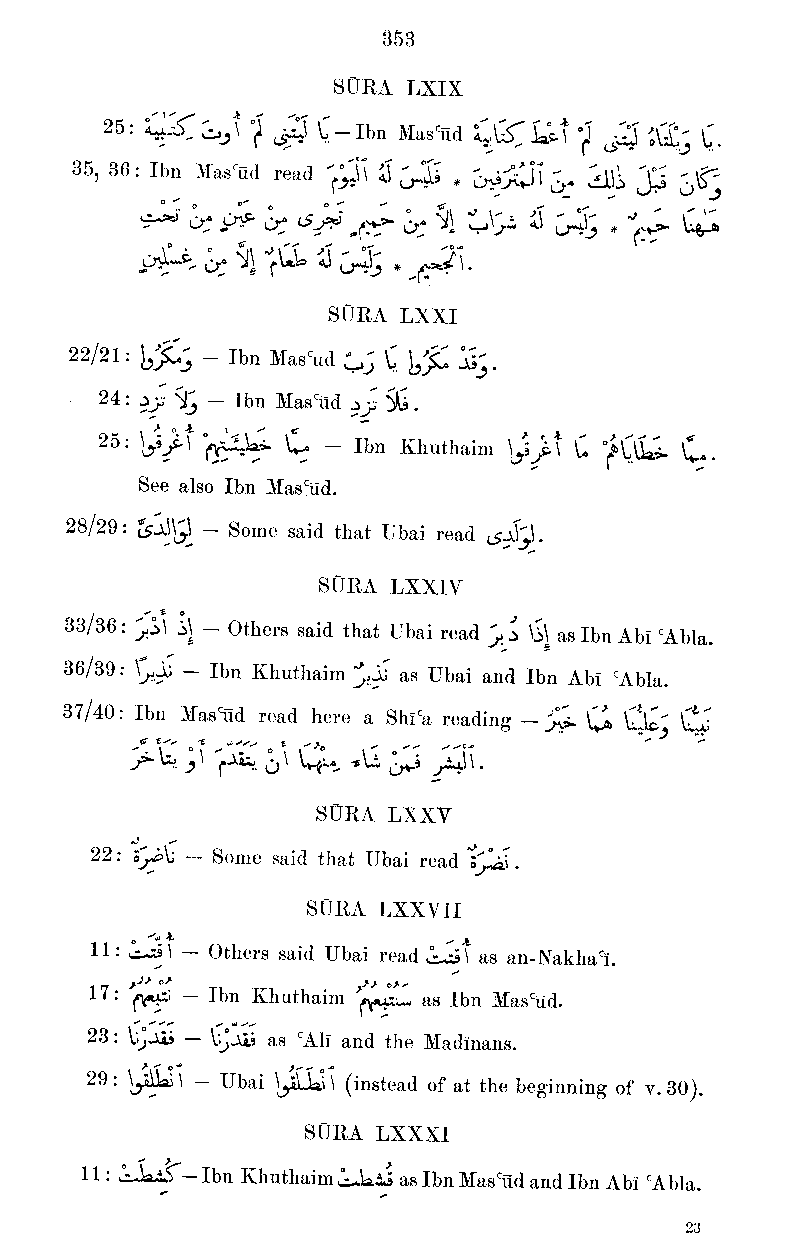 353
SŪRA LXIX
25: يَا لَيْتَنِى لَمْ أُوتَ كِتَٰبِيَهْ — Ibn Masʿūd يَا وَيْلَتَاهُ لَيْتَنِى لَمْ أُعْطَ كِتَابِيَهْ.
35, 36: Ibn Masʿūd read وَكَانَ قَبْلَ ذٰلِكَ مِنَ ٱلْمُتْرَفِينَ * فَلَيْسَ لَهُ ٱلْيَوْمَ
هَٰهُنَا حَمِيمٌ * وَلَيْسَ لَهُ شَرَابٌ إِلَّا مِنْ حَمِيمٍ تَجْرِى مِنْ عَيْنٍ مِنْ تَحْتِ
ٱلْجَحِيمِ * وَلَيْسَ لَهُ طَعَامٌ إِلَّا مِنْ غِسْلِينٍ.
SŪRA LXXI
22/21: وَمَكَرُوا — Ibn Masʿud وَقَدْ مَكَرُوا يَا رَبِّ.
24: وَلَا تَزِدِ — Ibn Masʿūd فَلَا تَزِدِ.
25: مِمَّا خَطِيئَٰتِهِمْ أُغْرِقُوا — Ibn Khuthaim مِمَّا خَطَايَاهُمْ مَا أُغْرِقُوا.
See also Ibn Masʿūd.
28/29: لِوَالِدَىَّ — Some said that Ubai read لِوَلَدِى.
SŪRA LXXIV
33/36: إِذْ أَدْبَرَ — Others said that Ubai read إِذَا دَبَرَ as Ibn Abī ʿAbla.
36/39: نَذِيرًا — Ibn Khuthaim نَذِيرٌ as Ubai and Ibn Abī ʿAbla.
37/40: Ibn Masʿūd read here a Shīʿa reading — نَبِيُّنَا وَعَلِيُّنَا هُمَا خَيْرُ
ٱلْبَشَرِ فَمَنْ شَاء مِنْهُمَا أَنْ يَتَقَدَّمَ أَوْ يَتَأَخَّرَ.
SŪRA LXXV
22: نَاضِرَةٌ — Some said that Ubai read نَضْرَةٌ.
SŪRA LXXVII
11: أُقِّتَتْ — Others said Ubai read أُقِتَتْ as an-Nakhaʿī.
17: نُتْبِعُهُمُ — Ibn Khuthaim سَنُتْبِعُهُمُ as Ibn Masʿūd.
23: فَقَدَرْنَا — فَقَدَّرْنَا as ʿAlī and the Madīnans.
29: ٱنْطَلِقُوا — Ubai ٱنْطَلَقُوا (instead of at the beginning of v. 30).
SŪRA LXXXI
11: كُشِطَتْ — Ibn Khuthaim قُشِطَتْ as Ibn Masʿūd and Ibn Abī ʿAbla.
23